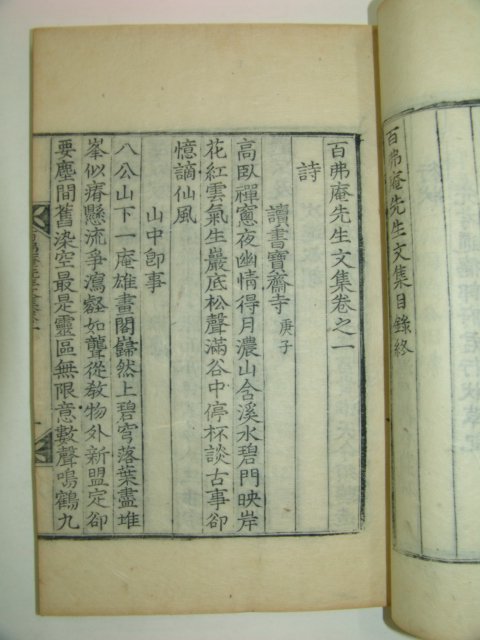 百弗庵先生文集目錄終
百弗庵先生文集卷之一
詩
讀書寶齋寺 庚子
高臥禪窓夜幽情得月濃山含溪水碧門映岸
花紅雲氣生巖底松聲滿谷中停杯談古事卻
憶謫仙風
山中卽事
八公山下一庵雄畫閣巋然上碧穹落葉盡堆
峯似瘠懸流爭瀉壑如聾從敎物外新盟定卻
要塵間舊染空最是靈區無限意數聲鳴鶴九